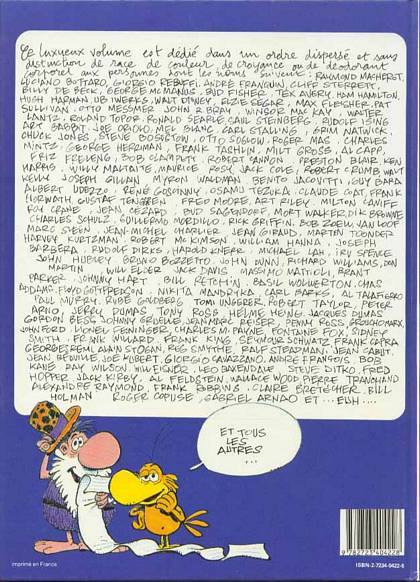 Ce luxueux volume est dédié dans un ordre dispersé et sans
distinction de race de couleur, de croyance ou de déodorant
corporel aux personnes dont les noms suivent: RAYMOND MACHEROT,
LUCIANO BOTTARO, GIORGIO REBUFFI, ANDRÉ FRANQUIN, CLIFF STERRETT,
BILLY DE BECK, GEORGE MC MANUS, BUD FISHER, TEX AVERY, HAM HAMILTON,
HUGH HARMAN, UB IWERKS, WALT DISNEY, ELZIE SEGAR, MAX FLEISCHER, PAT
SULLIVAN, OTTO MESSMER, JOHN R BRAY, WINSOR MAC KAY, WALTER
LANTZ, ROLAND TOPOR, RONALD SEARLE, SAUL STEINBERG, RUDOLF ISING
ART BABBIT, JOE ORIOLO, MEL BLANC, CARL STALLING, GRIM NATWICK,
CHUCK JONES, STEVE BOSUSTOW, OTTO SOGLOW, ROGER MAS, CHARLES
MINTZ, GEORGE HERRIMAN, FRANK TASHLIN, MILT GROSS, AL CAPP,
FRIZ FRELENG, BOB CLAMPETT, ROBERT CANNON, PRESTON BLAIR, KEN
HARRIS, WILLY MALTAITE, MAURICE ROSY, JACK COLE, ROBERT CRUMB, WALT
KELLY, JOSEPH GILLAIN, MYRON WALDMAN, BENITO JACOVITTI, GUY BARA
ALBERT UDERZO, RENÉ GOSCINNY, OSAMU TEZUKA, CLAUDE COAT, FRANK
HORWATH, GUSTAF TENGGREN, FRED MOORE, ART RILEY, MILTON CANIFF
ROY CRANE, JEAN CÉZARD, BUD SAGENDORF, MORT WALKER, DIK BROWNE,
CHARLES SCHULZ, GUILLERMO MORDILLO, RICK GRIFFIN, BOB ZOELL, VAN LOOF
MARC SLEEN, JEAN-MICHEL CHARLIER, JEAN GIRAUD, MARTIN TOONDER
HARVEY KURTZMAN, ROBERT MC KIMSON, WILLIAM HANNA, JOSEPH
BARBERA, RUDOLF DIRKS, HAROLD KNERR, MICHAEL LAH, IRV SPENCE
JOHN HUBLEY, BRUNO BOZZETTO, JOHN DUNN, RICHARD WILLIAMS, DON
MARTIN, WILL ELDER, JACK DAVIS, MASSIMO MATTIOLI, BRANT
PARKER, JOHNNY HART, BILL PEET, BASIL WOLVERTON, CHAS
ADDAMS, FLOYD GOTTFREDSON, NIKITA MANDRYKA, CARL BARKS, AL TALIAFERRO
PAUL MURRY, RUBE GOLDBERG, TOMI UNGERER, ROBERT TAYLOR, PETER
ARNO, JERRY DUMAS, TONY ROSS, HELME HEINE, JACQUES DUMAS
GORDON BESS, JOHNNY GRUELLE, JEAN MARC REISER, PENNY ROSS, GROUCHO MARX,
JOHN FORD, LIONEL FEININGER, CHARLES M. PAYNE, FONTAINE FOX, SIDNEY
SMITH, FRANK WILLARD, FRANK KING, SEYMOUR SCHWARTZ, FRANK CAPRA
GEORGES REMI, ALAIN ST OGAN, REG SMYTHE, RALF STEADMAN, JEAN CABUT,
JEAN EFFEL, JOE KUBERT, GIORGIO CAVAZZANO, ANDRÉ FRANÇOIS, BOB
KANE, RAY WILSON, WILL EISNER, LEO BAXENDALE, STEVE DITKO, FRED
HOPPER, JACK KIRBY, AL FELDSTEIN, WALLACE WOOD, PIERRE TRANCHAND
ALEXANDRE RAYMOND, FRANK ROBBINS, CLAIRE BRETECHER, BILL
HOLMAN, ROGER COPUSE, GABRIEL ARNAO ET ... EUH ....
ET TOUS
LES
AUTRES...
imprimé en France
9 782723 404228
ISBN-2-7234-0422-6